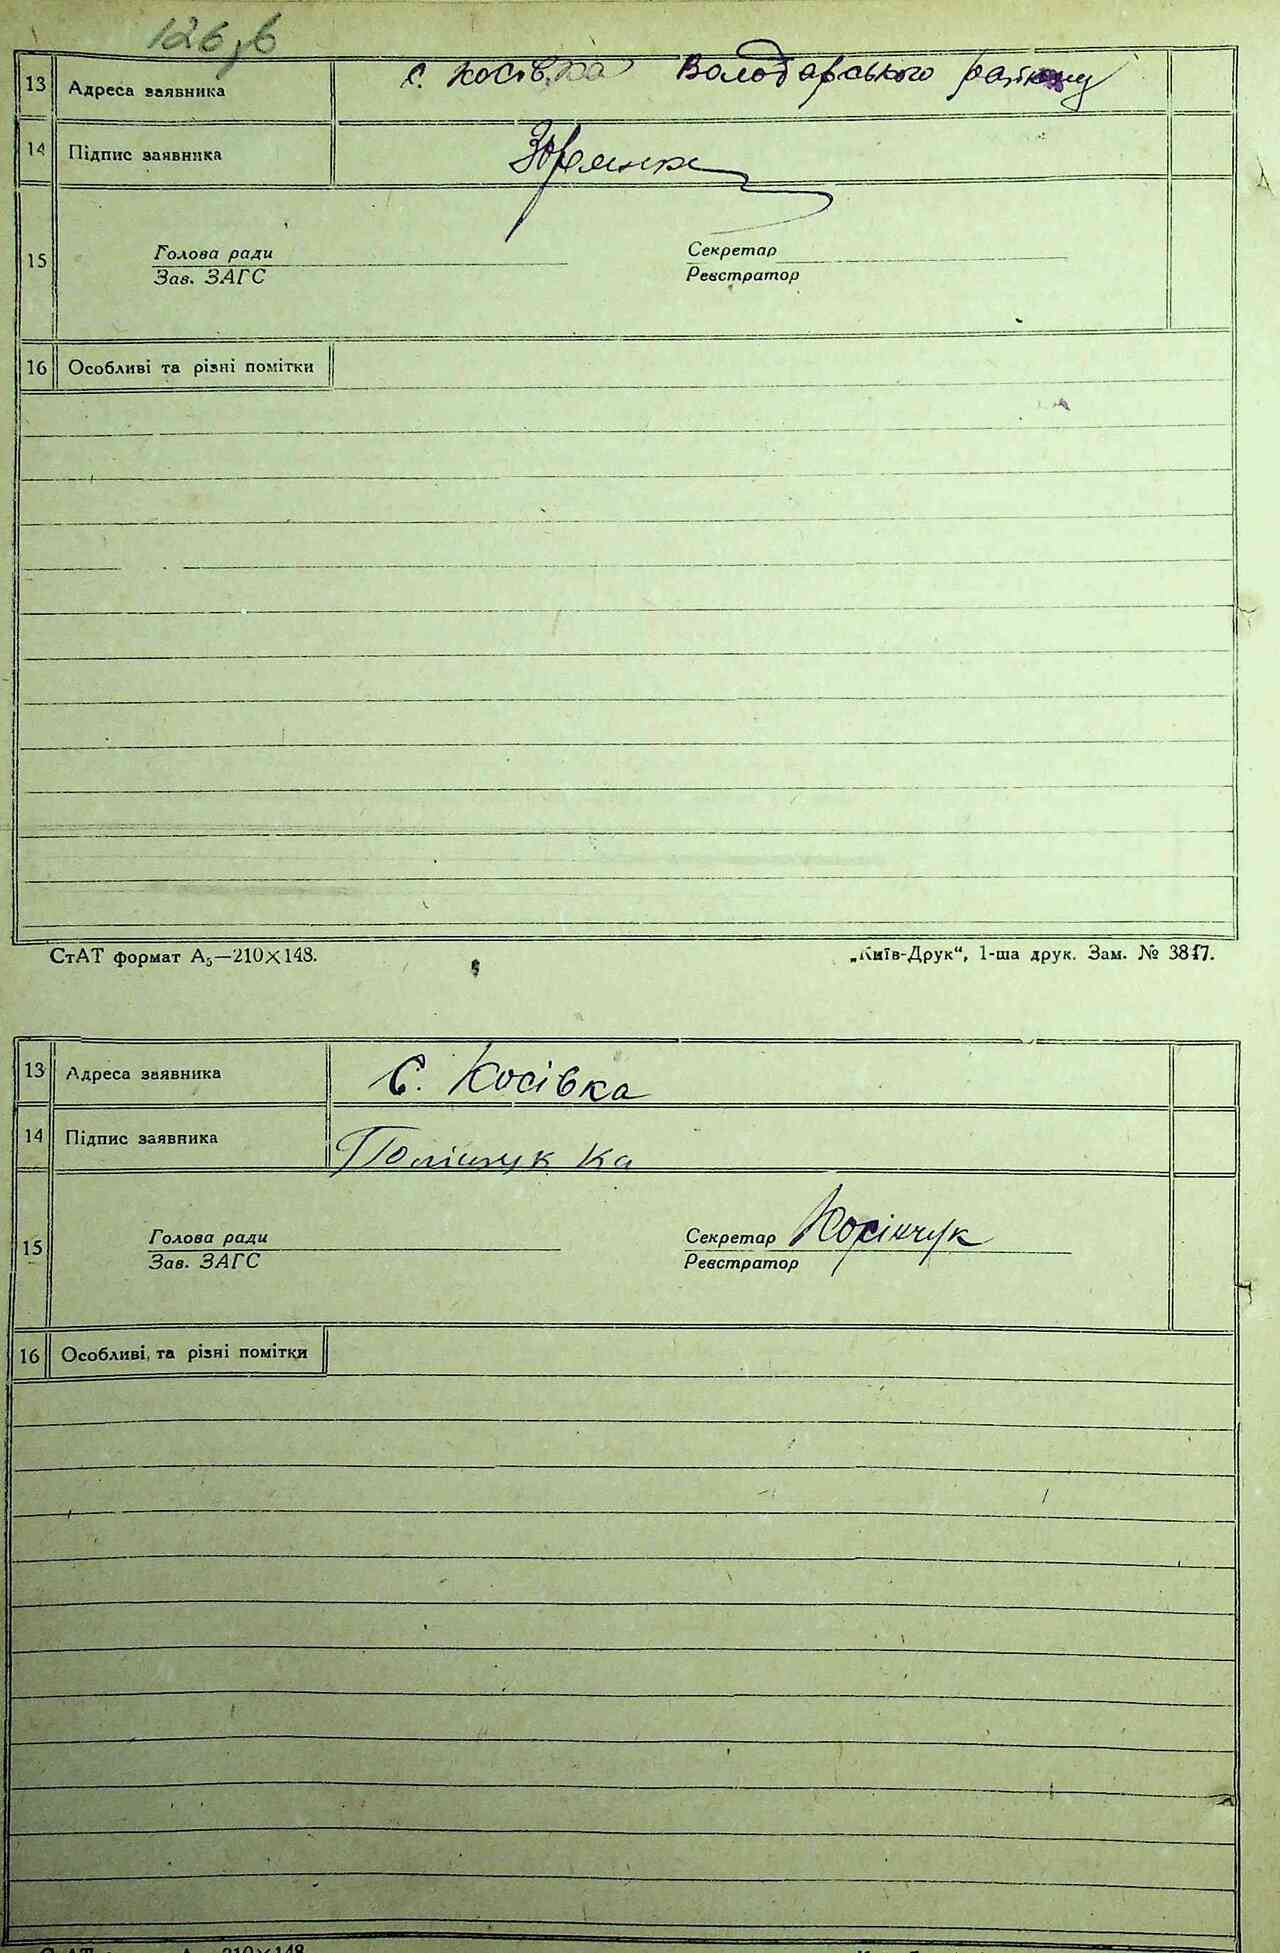 126зв
13 Адреса заявника с. Косівка Володарського району
14 Підпис заявника
15 Голова ради Секретар
Зав. ЗАГС Реєстратор
16 Особливі та різні помітки
СтАТ формат А₅—210×148. „Київ-Друк“, 1-ша друк. Зам. № 3847.
13 Адреса заявника С. Косівка
14 Підпис заявника Поліщук Ка
15 Голова ради Секретар
Зав. ЗАГС Реєстратор
16 Особливі та різні помітки